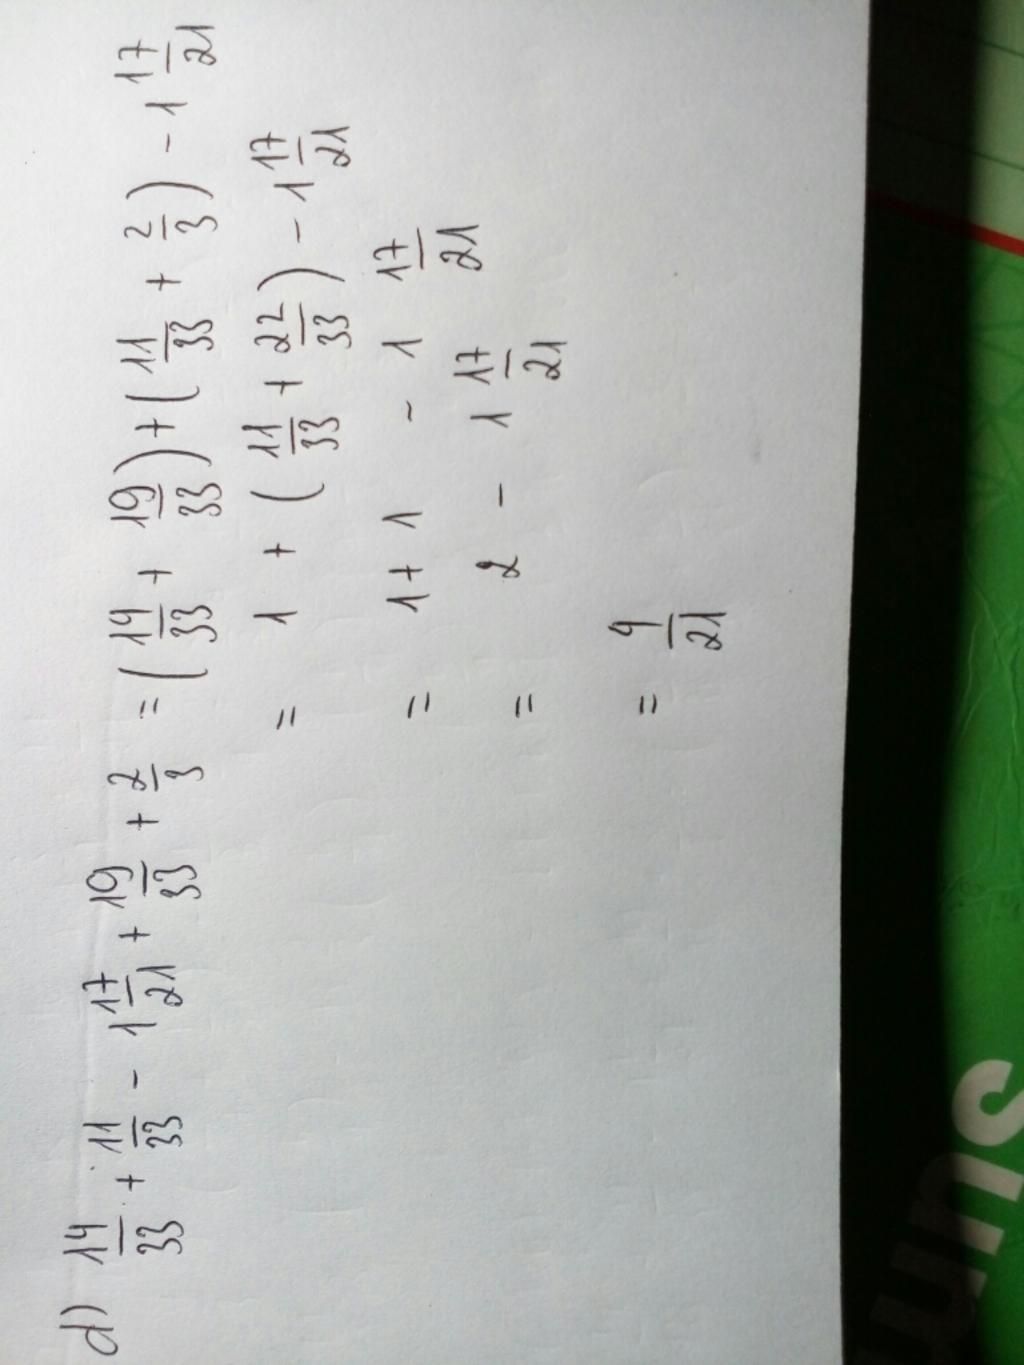 d) 14/33 + 11/33 - 1 17/21 + 19/33 + 2/3 = (14/33 + 19/33) + (11/33 + 2/3) - 1 17/21
= 1 + (11/33 + 22/33) - 1 17/21
= 1 + 1 - 1 17/21
= 2 - 1 17/21
= 4/21